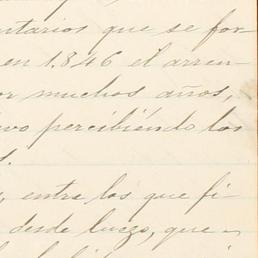 ntarios que se for-
en 1.846 el arren-
or muchos años,
vo percibiendo los
s.
, entre los que fi-
desde luego, que